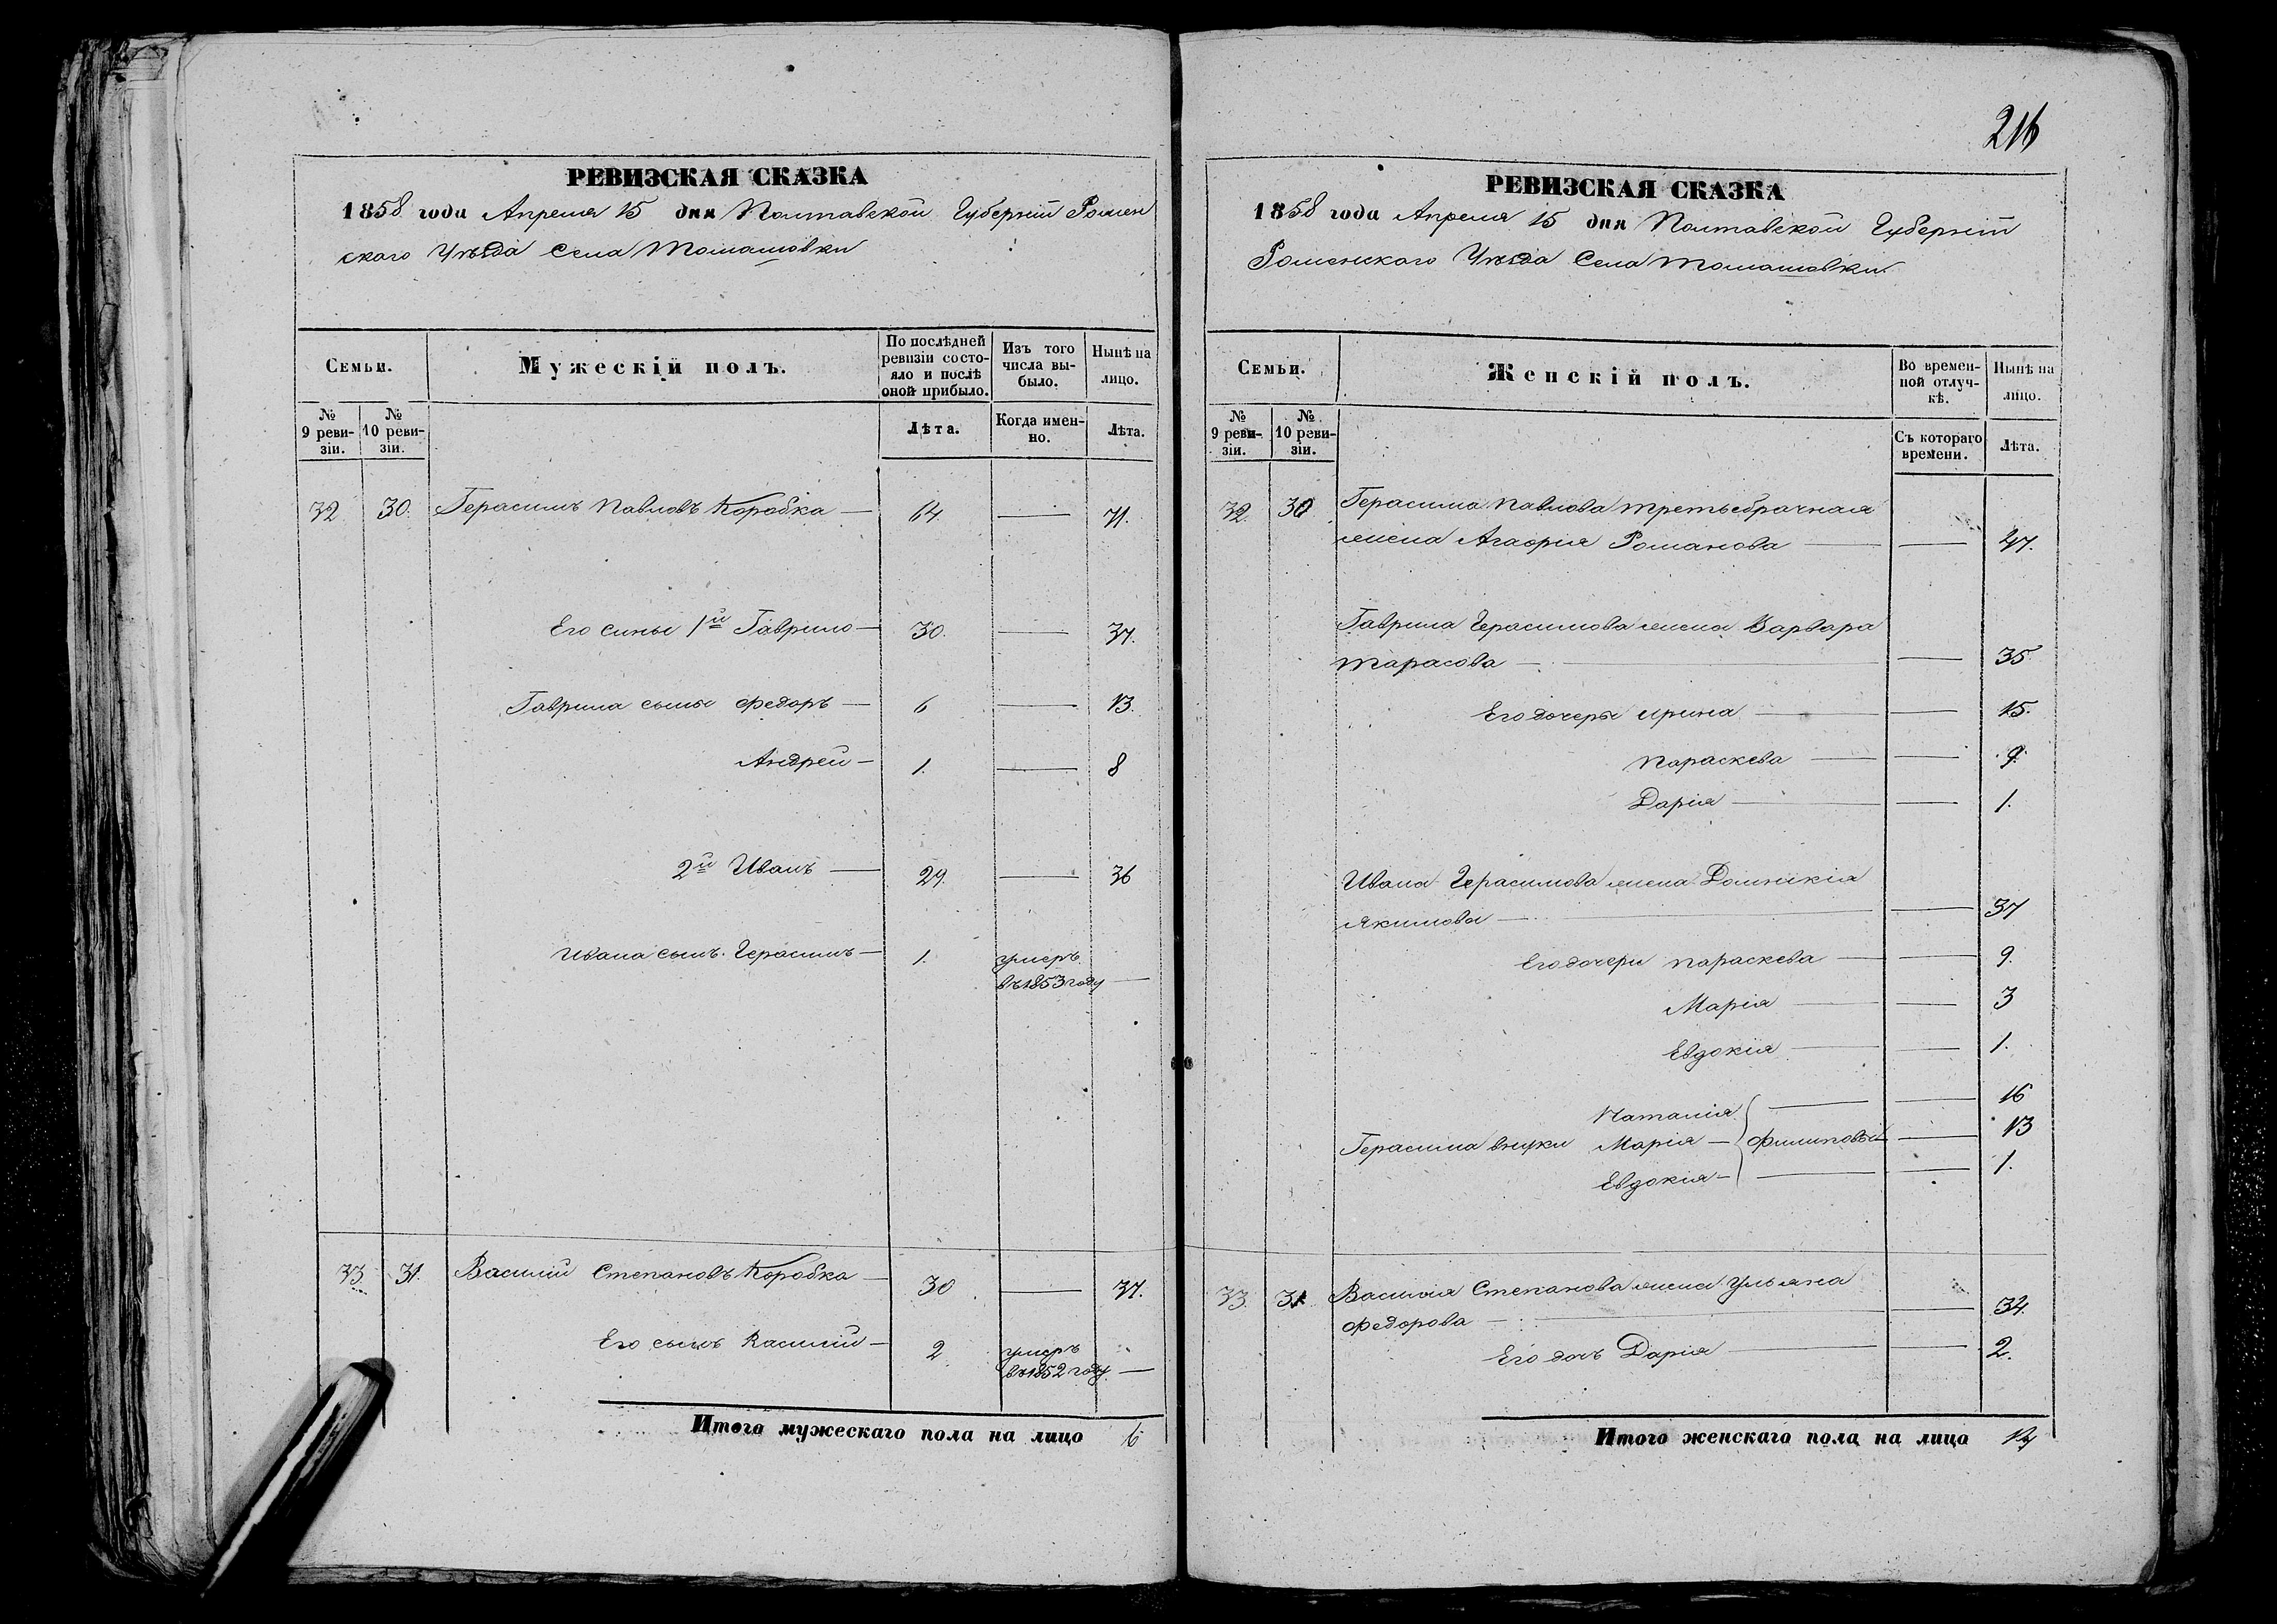 РЕВИЗСКАЯ СКАЗКА
1858 года Апреля 15 дня Полтавской Губерніи Ромен
скаго Уѣзда Села Томашовки
Семьи.
Мужескій полъ.
По послѣдней ревизіи состояло и послѣ оной прибыло.
Изъ того числа выбыло.
Нынѣ на лицо.
№ 9 ревизіи.
№ 10 ревизіи.
Лѣта.
Когда именно.
Лѣта.
32 30. Герасимъ Павловъ Коробка — 64. — 71.
Его сины 1й Гаврило — 30. — 37.
Гаврила сыны Федоръ — 6 — 13.
Андрей — 1. — 8
2й Иванъ — 29. — 36
Ивана сынъ Герасимъ — 1. умеръ
въ 1853 году —
33 31. Василій Степановъ Коробка — 30 — 37.
Его сынъ Василій — 2 умеръ
въ 1852 году. —
Итого мужескаго пола на лицо 6
216
РЕВИЗСКАЯ СКАЗКА
1858 года Апреля 15 дня Полтавской Губерніи
Роменскаго Уѣзда Села Томашовки
Семьи.
Женскій полъ.
Во временной отлучкѣ.
Нынѣ на лицо.
№ 9 ревизіи.
№ 10 ревизіи.
Съ котораго времени.
Лѣта.
32. 30 Герасима Павлова третьебрачная
жена Агафія Романова — — 47.
Гаврила Герасимова жена Варвара
Тарасова — — 35.
Его дочеры Ирина — — 15.
Параскева — — 9.
Дарія — — 1.
Ивана Герасимова жена Домникія
Якимова — — 37
Его дочери Параскева — — 9.
Марія — — 3
Евдокія — — 1.
Наталія — — 16
Герасима внуки Марія — Филиповы — 13
Евдокія — — — 1.
33. 31. Василія Степанова жена Ульяна
Федорова — — 34.
Его дочь Дарія — — 2.
Итого женскаго пола на лицо